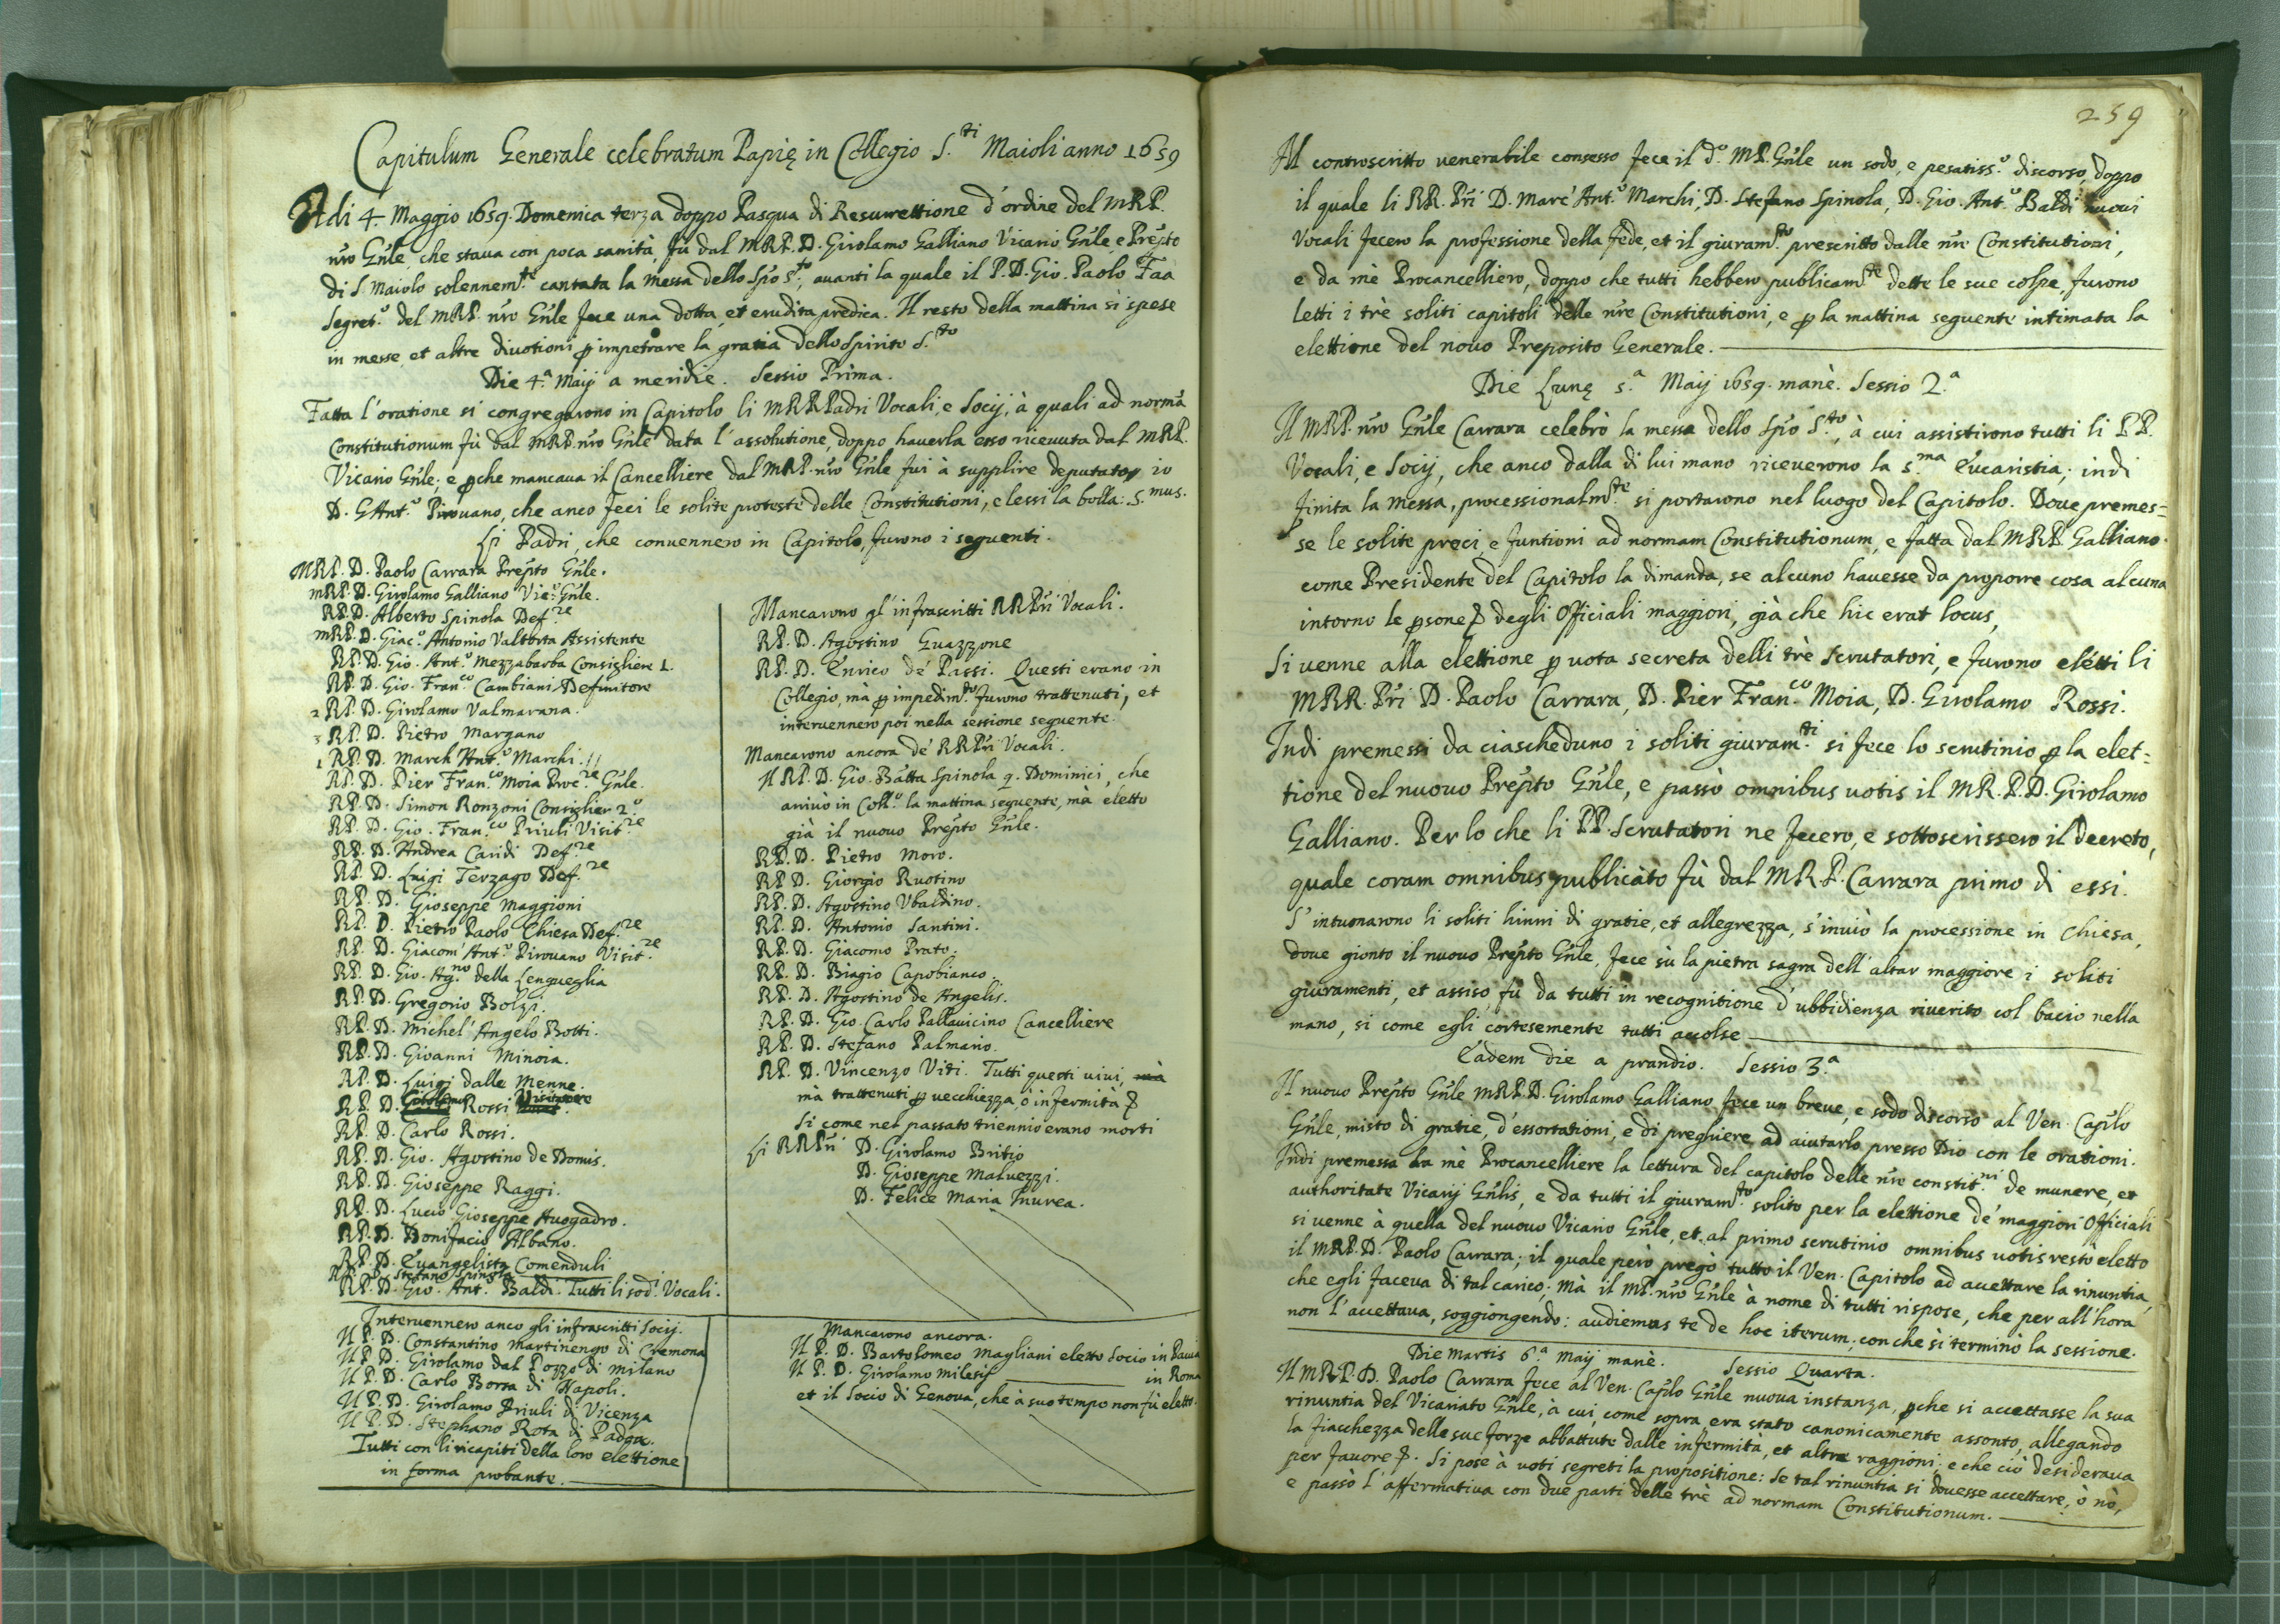 Capitulum Generale celebratum Papię in Collegio S.ti Maioli anno 1659
Adi 4. Maggio 1659. Domenica terza doppo Pasqua di Resurrettione d'ordine del M.R.P.
nro Gnle, che staua con poca sanità, fù dal M.R.P. D. Girolamo Galliano Vicario Gnle e Prepto
di S. Maiolo solennem.te cantata la messa dello Spo S.to, auanti la quale il P. D. Gio. Paolo Faa
Segret.o del M.R.P. nro Gnle fece una dotta, et erudita predica. Il resto della mattina si spese
in messe, et altre diuotioni p impetrare la gratia dello Spirito S.to
Die 4.a Maij a meridie. Sessio Prima.
Fatta l'oratione si congregarono in Capitolo li M.R.R. Padri Vocali, e Socij, à quali ad normã
Constitutionum fù dal M.R.P. nro Gnle data l'assolutione, doppo hauerla esso riceuuta dal M.R.P.
Vicario Gnle; e pche mancaua il Cancelliere dal M.R.P. nro Gnle fui à supplire deputato io
D. G Ant.o Pirouano, che anco feci le solite proteste delle Constitutioni, e lessi la bolla: S.mus.
Li Padri, che conuennero in Capitolo, furono i seguenti.
M.R.P. D. Paolo Carrara Prepto Gnle.
M.R.P. D. Girolamo Galliano Vic.o Gnle.
R.P. D. Alberto Spinola Def.re
M.R.P. D. Giac.o Antonio Valtorta Assistente
R.P. D. Gio. Ant.o Mezzabarba Consigliere 1.
R.P. D. Gio. Fran.co Cambiani Definitore
2 R.P. D. Girolamo Valmarana.
3 R.P. D. Pietro Margano
1 R.P. D. March' Ant.o Marchi.
R.P. D. Pier Fran.co Moia Proc.re Gnle.
R.P. D. Simon Ronzoni Consiglier 2.o
R.P. D. Gio. Fran.co Priuli Visit.re
R.P. D. Andrea Caridi Def.re
R.P. D. Luigi Terzago Def.re
R.P. D. Gioseppe Maggioni
R.P. D. Pietro Paolo Chiesa Def.re
R.P. D. Giacom' Ant.o Pirouano Visit.re
R.P. D. Gio. Ag.no della Lengueglia
R.P. D. Gregorio Bolzi.
R.P. D. Michel' Angelo Botti.
R.P. D. Giouanni Minoia.
R.P. D. Luigi dalle Menne.
R.P. D. Girolamo Rossi Visitatore
R.P. D. Carlo Rossi.
R.P. D. Gio. Agostino de Domis.
R.P. D. Gioseppe Raggi.
R.P. D. Lucio Gioseppe Auogadro.
R.P. D. Bonifacio Albano.
R.P. D. Euangelista Comenduli
R.P. D. Stefano Spinola
R.P. D. Gio. Ant. Baldi. Tutti li sod.i Vocali.
Mancarono gl'infrascritti RR Pri Vocali.
R.P. D. Agostino Guazzone
R.P. D. Enrico de' Passi. Questi erano in
Collegio, mà p impedim.to furono trattenuti, et
interuennero poi nella sessione seguente.
Mancarono ancora de' RR Pri Vocali.
Il R.P. D. Gio. Batta Spinola q. Dominici, che
arriuò in Coll.o la mattina seguente, mà eletto
già il nuouo Prepto Gnle.
R.P. D. Pietro Moro.
R.P. D. Giorgio Ruotino
R.P. D. Agostino Vbaldino.
R.P. D. Antonio Santini.
R.P. D. Giacomo Prato.
R.P. D. Biagio Capobianco.
R.P. D. Agostino de Angelis.
R.P. D. Gio. Carlo Pallauicino Cancelliere
R.P. D. Stefano Palmano.
R.P. D. Vincenzo Viti. Tutti questi uiui, mà
mà trattenuti p uecchiezza, ò infermità
Si come nel passato triennio erano morti
Li RR Pri D. Girolamo Britio
D. Gioseppe Maluezzi.
D. Felice Maria Inurea.
Interuennero anco gli infrascritti Socij.
Il P. D. Constantino Martinengo di Cremona
Il P. D. Girolamo dal Pozzo di Milano
Il P. D. Carlo Borsa di Napoli.
Il P. D. Girolamo Priuli di Vicenza
Il P. D. Stephano Rota di Padoa.
Tutti con li ricapiti della loro elettione
in forma probante.
Mancarono ancora.
Il P. D. Bartolomeo Magliani eletto Socio in Pauia
Il P. D. Girolamo Milesij in Roma
et il Socio di Genoua, che à suo tempo non fù eletto.
259
Al controscritto uenerabile consesso fece il d.o M.P. Gnle un sodo, e pesatiss.o discorso, doppo
il quale li RR. Pri D. Marc' Ant.o Marchi, D. Stefano Spinola, D. Gio. Ant.o Baldi nuoui
Vocali fecero la professione della fede, et il giuram.to prescritto dalle nre Constitutioni,
e da mè Procancelliero, doppo che tutti hebbero publicam.te dette le sue colpe, furono
letti i trè soliti capitoli delle nre Constitutioni, e p la mattina seguente intimata la
elettione del nouo Preposito Generale.
Die Lunę 5.a Maij 1659. manè. Sessio 2.a
Il M.R.P. nro Gnle Carrara celebrò la messa dello Spo S.to, à cui assistirono tutti li P.P.
Vocali, e Socij, che anco dalla di lui mano riceuerono la S.ma Eucaristia; indi
finita la messa, processionalm.te si portarono nel luogo del Capitolo. Doue premes=
se le solite preci, e funtioni ad normam Constitutionum, e fatta dal M.R.P. Galliano
come Presidente del Capitolo la dimanda, se alcuno hauesse da proporre cosa alcuna
intorno le psone degli Officiali maggiori, già che hic erat locus,
Si uenne alla elettione p uota secreta delli trè Scrutatori, e furono elétti li
M.R.R. Pri D. Paolo Carrara, D. Pier Fran.co Moia, D. Girolamo Rossi.
Indi premessi da ciascheduno i soliti giuram.ti si fece lo scrutinio p la elet=
tione del nuouo Prepto Gnle, e passò omnibus uotis il M.R.P. D. Girolamo
Galliano. Per lo che li PP. Scrutatori ne fecero, e sottoscrissero il decreto,
quale coram omnibus publicato fù dal M.R.P. Carrara primo di essi.
S'intuonarono li soliti hinni di gratie, et allegrezza, s'inuiò la processione in Chiesa,
doue gionto il nuouo Prepto Gnle, fece sù la pietra sagra dell'altar maggiore i soliti
giuramenti, et assiso, fù da tutti in recognitione d'ubbidienza riuerito col bacio nella
mano, si come egli cortesemente tutti accolse.
Eadem die a prandio. Sessio 3.a
Il nuouo Prepto Gnle M.R.P. D. Girolamo Galliano fece un breue, e sodo discorso al Ven. Caplo
Gnle, misto di gratie, d'essortationi, e di preghiere ad aiutarlo presso Dio con le orationi.
Indi premessa da mè Procancelliere la lettura del capitolo delle nre constit.ni de munere, et
authoritate Vicarij Gnlis, e da tutti il giuram.to solito per la elettione de' maggiori Officiali
si uenne à quella del nuouo Vicario Gnle, et al primo scrutinio omnibus uotis restò eletto
il M.R.P. D. Paolo Carrara; il quale però pregò tutto il Ven. Capitolo ad accettare la rinuntia,
che egli faceua di tal carico; mà il M.P. nro Gnle à nome di tutti rispose, che per all'hora
non l'accettaua, soggiongendo: audiemus te de hoc iterum; con che si terminò la sessione.
Die Martis 6.a Maij manè. Sessio Quarta.
Il M.R.P. D. Paolo Carrara fece al Ven. Caplo Gnle nuoua instanza, pche si accettasse la sua
rinuntia del Vicariato Gnle, à cui, come sopra, era stato canonicamente assonto, allegando
la fiacchezza delle sue forze abbattute dalle infermità, et altre raggioni; e che ciò desideraua
per fauore. Si pose à uoti segreti la propositione: Se tal rinuntia si douesse accettare, ò nò,
e passò l'affermatiua con due parti delle trè ad normam Constitutionum.